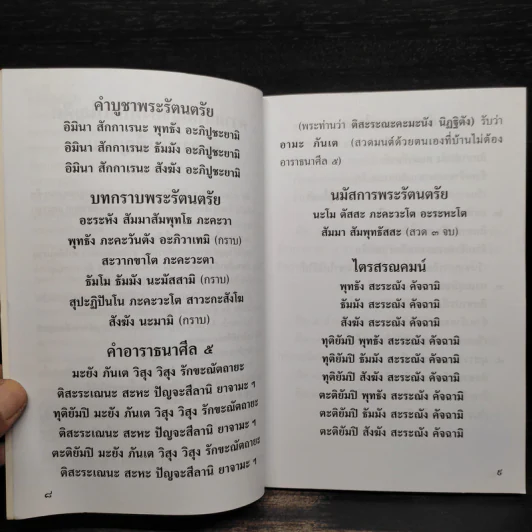 คำบูชาพระรัตนตรัย
อิมินา สักกาเรนะ พุทธัง อะภิปูชะยามิ
อิมินา สักกาเรนะ ธัมมัง อะภิปูชะยามิ
อิมินา สักกาเรนะ สังฆัง อะภิปูชะยามิ
บทกราบพระรัตนตรัย
อะระหัง สัมมาสัมพุทโธ ภะคะวา
พุทธัง ภะคะวันตัง อะภิวาเทมิ (กราบ)
สะวากขาโต ภะคะวะตา
ธัมโม ธัมมัง นะมัสสามิ (กราบ)
สุปะฏิปันโน ภะคะวะโต สาวะกะสังโฆ
สังฆัง นะมามิ (กราบ)
คำอาราธนาศีล ๕
มะยัง ภันเต วิสุง วิสุง รักขะณัตถายะ
ติสะระเณนะ สะหะ ปัญจะสีลานิ ยาจามะ ฯ
ทุติยัมปิ มะยัง ภันเต วิสุง วิสุง รักขะณัตถายะ
ติสะระเณนะ สะหะ ปัญจะสีลานิ ยาจามะ ฯ
ตะติยัมปิ มะยัง ภันเต วิสุง วิสุง รักขะณัตถายะ
ติสะระเณนะ สะหะ ปัญจะสีลานิ ยาจามะ ฯ
๘
(พระท่านว่า ติสะระณะคะมะนัง นิฏฐิตัง) รับว่า
อามะ ภันเต (สวดมนต์ด้วยตนเองที่บ้านไม่ต้อง
อาราธนาศีล ๕)
นมัสการพระรัตนตรัย
นะโม ตัสสะ ภะคะวะโต อะระหะโต
สัมมา สัมพุทธัสสะ (สวด ๓ จบ)
ไตรสรณคมน์
พุทธัง สะระณัง คัจฉามิ
ธัมมัง สะระณัง คัจฉามิ
สังฆัง สะระณัง คัจฉามิ
ทุติยัมปิ พุทธัง สะระณัง คัจฉามิ
ทุติยัมปิ ธัมมัง สะระณัง คัจฉามิ
ทุติยัมปิ สังฆัง สะระณัง คัจฉามิ
ตะติยัมปิ พุทธัง สะระณัง คัจฉามิ
ตะติยัมปิ ธัมมัง สะระณัง คัจฉามิ
ตะติยัมปิ สังฆัง สะระณัง คัจฉามิ
๙